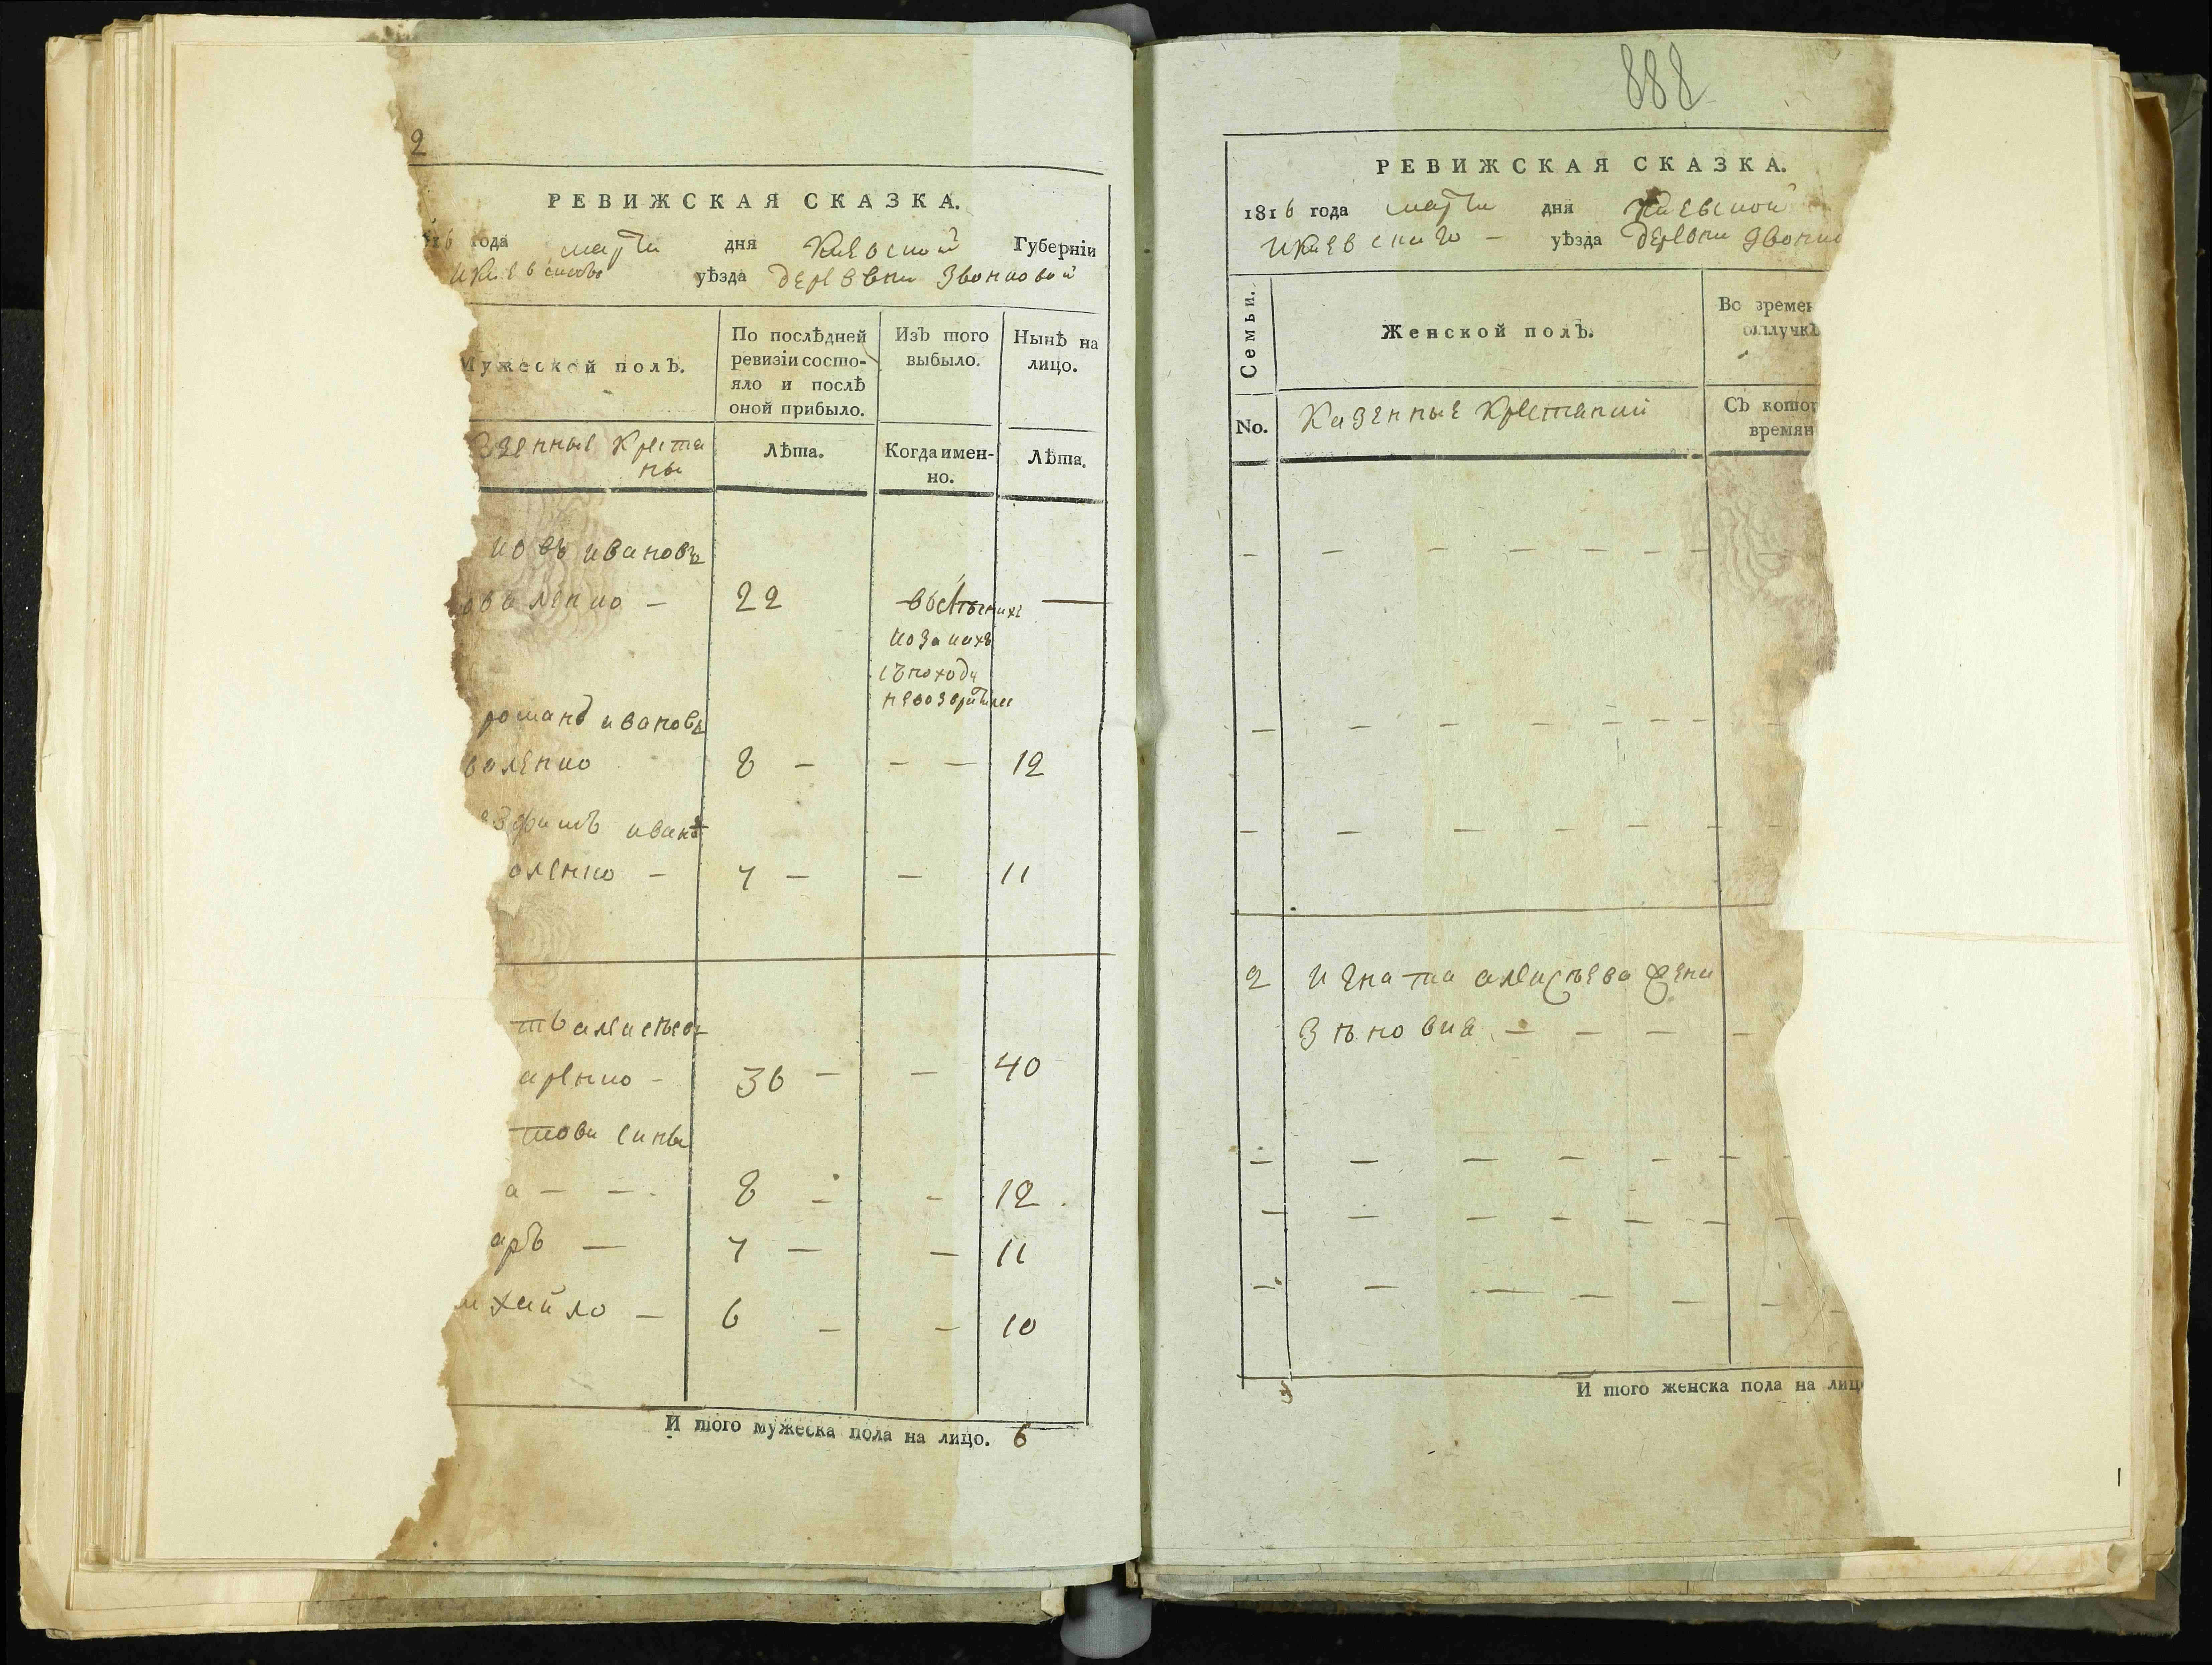 2
РЕВИЖСКАЯ СКАЗКА.
года марта дня Киевской Губерніи
Икиевскаго уѣзда деревни Звонковой
Мужеской полЪ.
По послѣдней
ревизіи состо-
яло и послѣ
оной прибыло.
ИзЪ того
выбыло.
НынѣЪ на
лицо.
Крестя
ны
Лѣта.
Когда имен-
но.
Лѣта.
ивановъ
22 —
козакахъ
съпохода
романъ ивановъ
валенко 8 — — — 12
иванъ
аленко — 7 — — 11
аренко — 36 — — 40
сины
а — — 8 — — 12
аръ — 7 — — 11
михайло — 6 — — 10
И того мужеска пола на лицо. 6
888
РЕВИЖСКАЯ СКАЗКА.
1816 года марта дня Киевской
Икиевскаго — уѣзда деревни Звонко
Семьи.
Женской полЪ.
Во времен
отлучкѢ
No.
Казенные Крестянки
СЪ котор
времян
2 Игната алексѣева жена
Зѣновия — — — —
И того женска пола на лиц